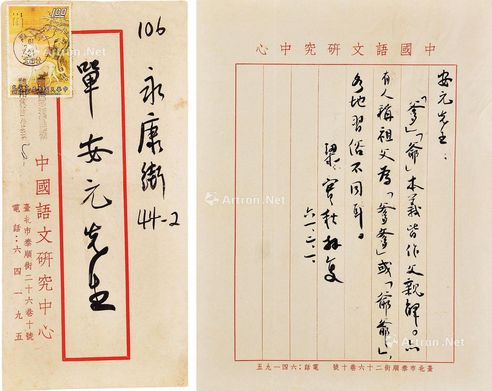 106
永康街
44-2
單安元先生
中國語文研究中心
臺北市泰順街二十六巷十號
電話：六四一九五
中國語文研究中心
安元先生：
「爹」「爺」本義皆作父親解。亦
有人稱祖父為「爹爹」或「爺爺」，
各地習俗不同耳。
梁實秋拜復
臺北市泰順街二十六巷十號 電話：六四一九五
Artron.Net
Artron.Net